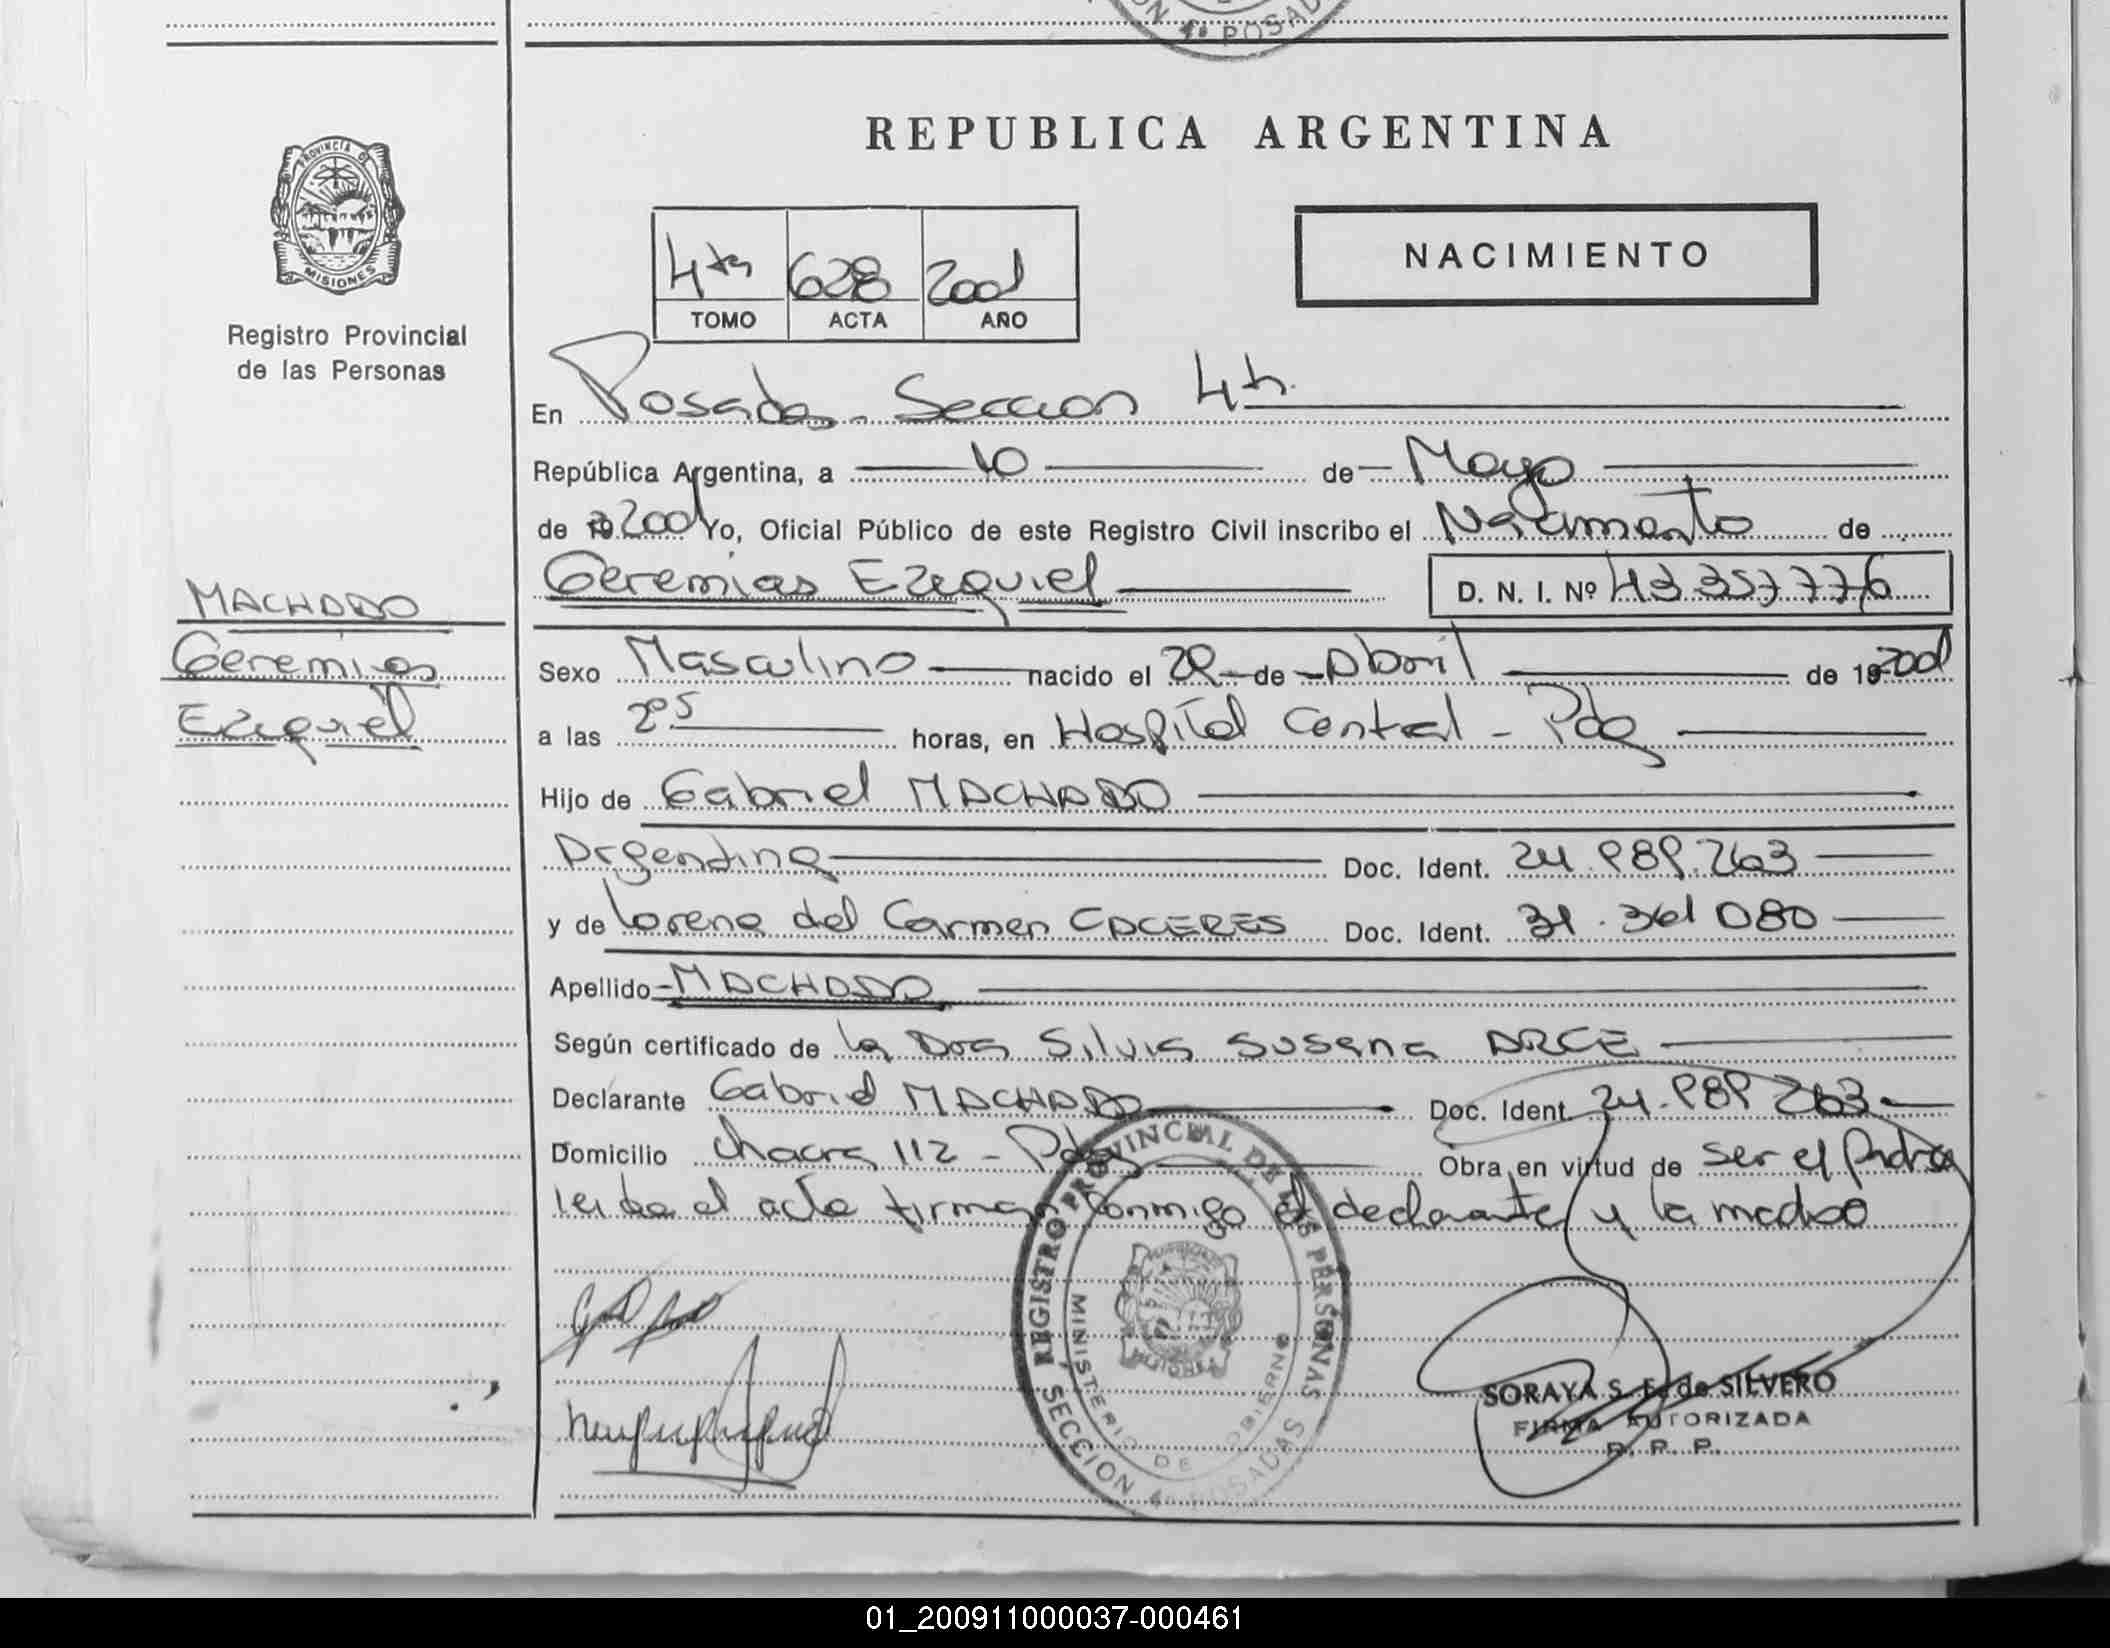 REPUBLICA ARGENTINA
PROVINCIA DE
MISIONES
Registro Provincial
de las Personas
NACIMIENTO
4ta 628 2001
TOMO ACTA AÑO
En Posadas - Seccion 4ta.
República Argentina, a 10 de Mayo
de 2001 Yo, Oficial Público de este Registro Civil inscribo el Nacimiento de
Geremias Ezequiel D. N. I. Nº 43 357 776
MACHADO
Geremias
Ezequiel
Sexo Masculino nacido el de Abril de 2001
a las 2 05 horas, en Hospital Central - Pdas
Hijo de Gabriel MACHADO
Argentina Doc. Ident. 24.989.263
y de Lorena del Carmen CACERES Doc. Ident. 31.361 080
Apellido MACHADO
Según certificado de la Dra Silvia Susana ARCE
Declarante Gabriel MACHADO Doc. Ident. 24.989 263
Domicilio chacra 112 - Pdas Obra en virtud de ser el Padre
leida el acta firman conmigo el declarante y la madre
REGISTRO PROVINCIAL DE LAS PERSONAS
MINISTERIO DE GOBIERNO
SECCION 4º POSADAS
SORAYA S. F. de SILVERO
FIRMA AUTORIZADA
R. P. P.
01_200911000037-000461